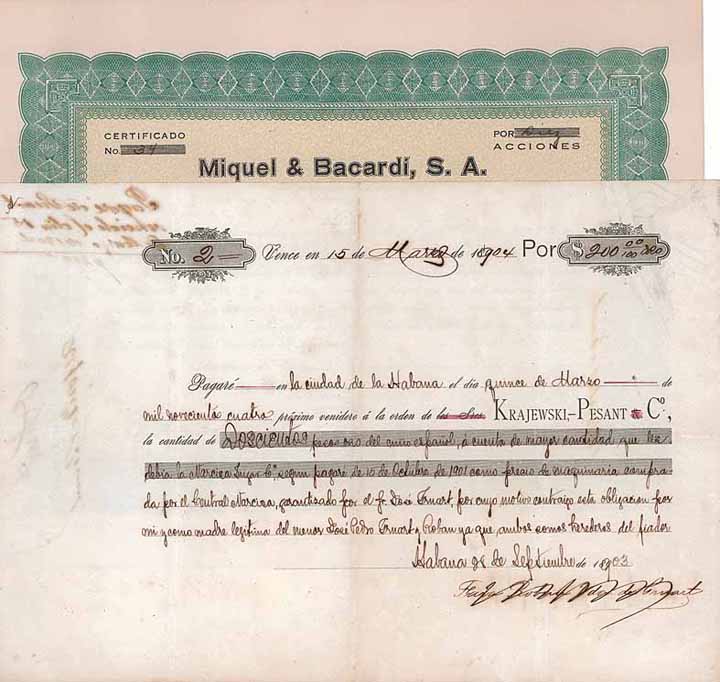 CERTIFICADO
No. 34
POR Diez
ACCIONES
Miquel & Bacardí, S. A.
No. 2
Vence en 15 de Marzo de 1904 Por $ 200 00/100 oro
Pagaré en la ciudad de la Habana el día quince de Marzo de
mil novecientos cuatro próximo venidero á la orden de los Sres. KRAJEWSKI-PESANT & Cº,
la cantidad de DOSCIENTOS pesos oro del cuño español, á cuenta de mayor cantidad que les
debía la Narcisa Sugar Cº, segun pagaré de 15 de Octubre de 1901 como precio de maquinaria compra-
da por el Central Narcisa, garantizado por el Sr. José, por cuyo motivo contraigo esta obligacion por
mi y como madre legitima del menor José Pedro y ya que ambos somos herederos del fiador
Habana 28 de Septiembre de 1903